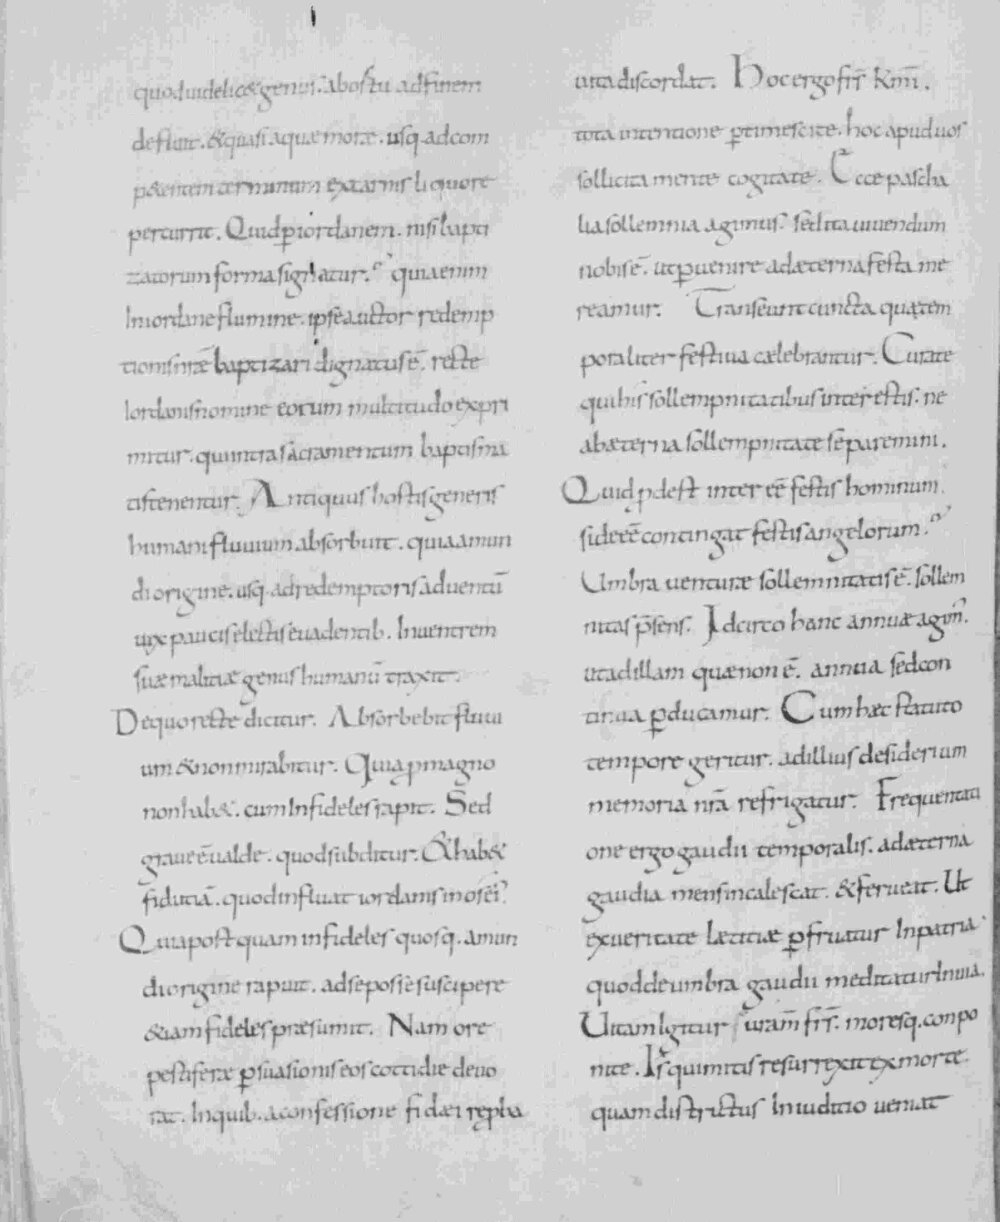 quod videlic& genus. ab ortu ad finem
defluit. & quasi aquae more. usq. ad com
p&entem terminum ex carnis liquore
percurrit. Quid p iordanem. nisi bapti
zatorum forma signatur. quia enim
In iordane flumine. ipse auctor redemp
tionis nr̄ae baptizari dignatus ē. recte
Iordanis nomine eorum multitudo expri
mitur. qui intra sacramentum baptisma
tis tenentur. Antiquus hostis generis
humani fluvium absorbuit. quia a mun
di origine. usq. ad redemptoris adventū
vix paucis electis evadentib. In ventrem
suae malitiae genus humanū traxit.
De quo recte dicitur. Absorbebit fluvi
um & non mirabitur. Quia p magno
non hab&. cum Infideles rapit. Sed
grave ē valde. quod subditur. & hab&
fiduciā. quod influat iordanis in os ei.
Quia postquam infideles quosq. a mun
di origine rapuit. ad se posse suscipere
&iam fideles praesumit. Nam ore
pestiferae p suasionis eos cottidie devo
rat. In quib. a confessione fidaei reproba
vita discordat. Hoc ergo fr̄s km̄i.
tota intentione ptimescite. hoc apud vos
sollicita mente cogitate. Ecce pascha
lia sollemnia agimus. sed ita vivendum
nobis ē. ut pvenire ad aeterna festa me
reamur. Transeunt cuncta quae tem
poraliter festiva caelebrantur. Curate
qui his sollempnitatibus inter estis. ne
ab aeterna sollempnitate separemini.
Quid pdest inter eē festis hominum.
si deeē contingat festis angelorum.
Umbra venturae sollemnitatis ē. sollem
nitas p̄sens. Idcirco hanc annuae agim.
ut ad illam quae non ē. annua sed con
tinua pducamur. Cum haec statuto
tempore geritur. ad illius desiderium
memoria nr̄a refrigatur. Frequentati
one ergo gaudii temporalis. ad aeterna
gaudia mens incalescat. & ferveat. Ut
ex veritate laetitiae pfruatur In patria
quod de umbra gaudii meditatur In via.
Vitam Igitur vr̄am fr̄s. moresq. conpo
nite. Is qui mitis resurrexit ex morte.
quam districtus In iuditio veniat